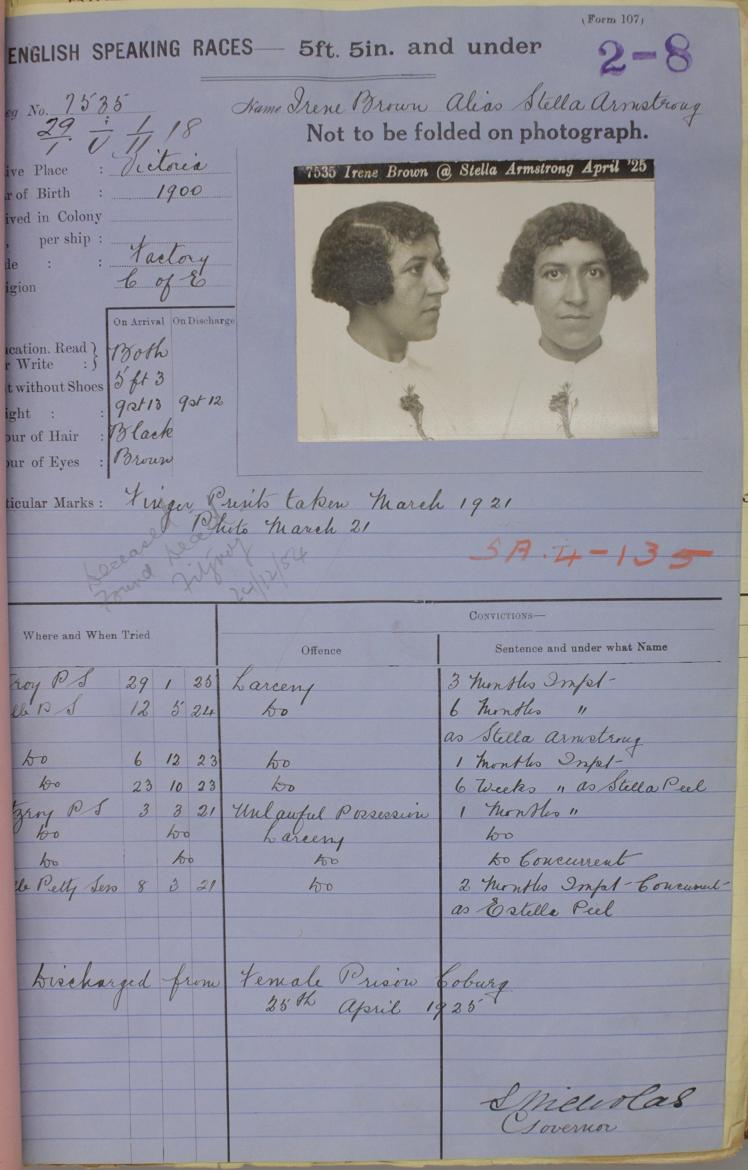 (Form 107)
ENGLISH SPEAKING RACES— 5ft. 5in. and under
2-8
eg No. 7535
Name Irene Brown Alias Stella Armstrong
29 i 1 18
1 U 11
Not to be folded on photograph.
ive Place : Victoria
7535 Irene Brown @ Stella Armstrong April '25
r of Birth : 1900
ived in Colony
, per ship :
de : : Factory
igion C of E
On Arrival On Discharge
ucation. Read }
r Write : } Both
t without Shoes 5 ft 3
ight : : 9st 13 9st 12
our of Hair : Black
our of Eyes : Brown
ticular Marks : Finger Prints taken March 1921
Photo March 21
Deceased
Found Dead
Fitzroy
24/12/54
SA.4-135
CONVICTIONS—
Where and When Tried Offence Sentence and under what Name
roy P S 29 1 25 Larceny 3 Months Impt-
lb P S 12 5 24 Do 6 Months "
as Stella Armstrong
Do 6 12 23 Do 1 Months Impt-
Do 23 10 23 Do 6 Weeks " as Stella Peel
tzroy P S 3 3 21 Unlawful Possession 1 Months "
Do Do Larceny Do
Do Do Do Do Concurrent
lb Petty Sess 8 3 21 Do 2 Months Impt- Concurrent-
as Estella Peel
Discharged from Female Prison Coburg
25th April 1925
Governor